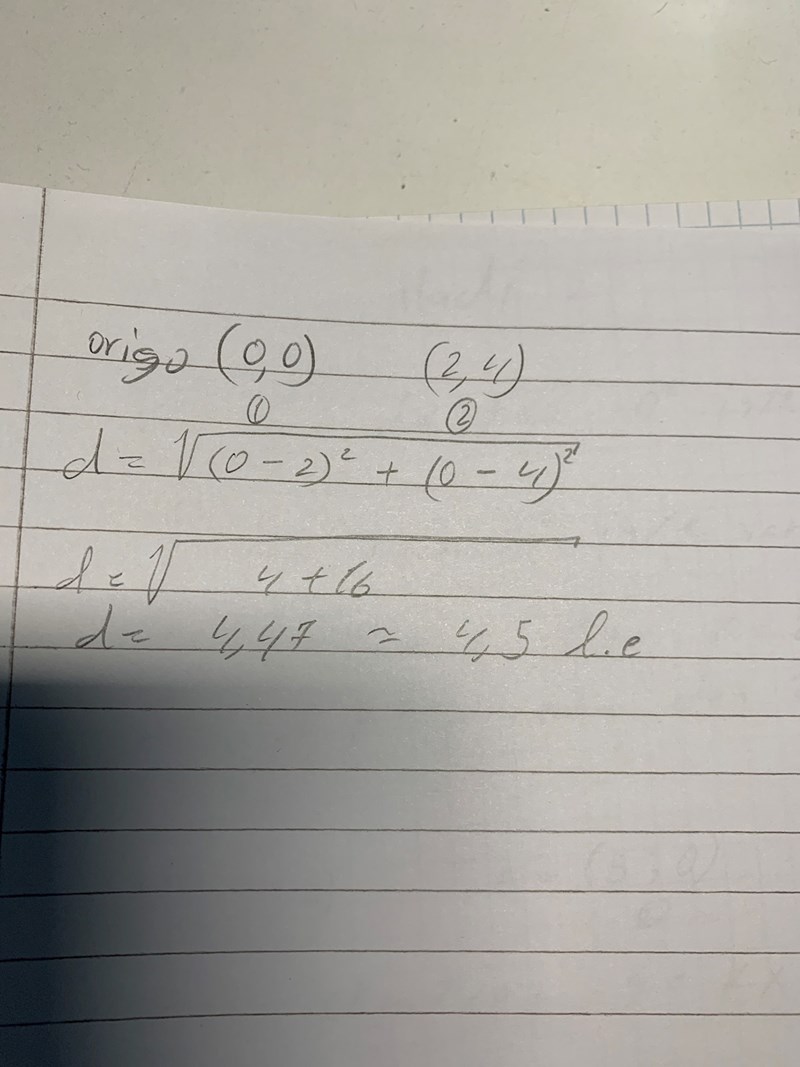 origo (0,0) (2,4)
① ②
d = √(0 - 2)² + (0 - 4)²
d = √4 + 16
d = 4,47 ≈ 4,5 l.e